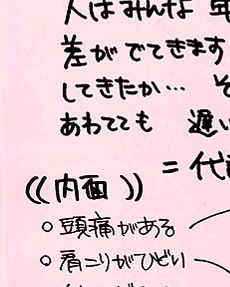 人はみんな 年
差が でてきます
してきたか… そ
あわてても 遅い
= 代謝
((内面))
○ 頭痛がある
○ 肩こりがひどい